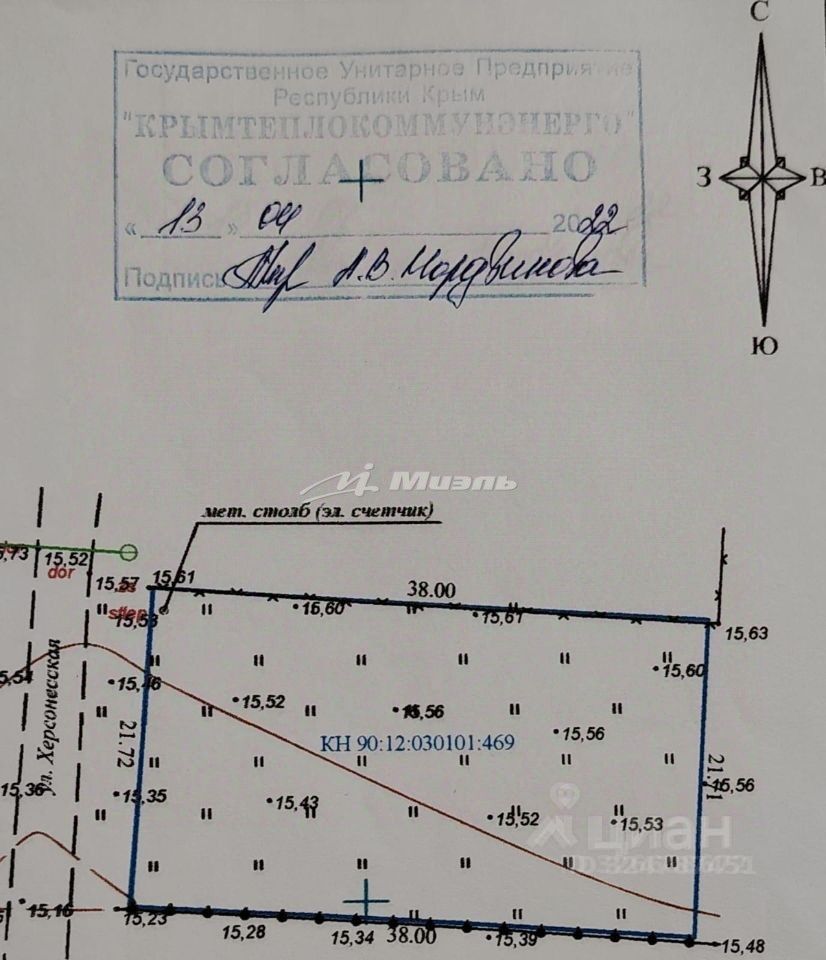 С
З
В
Ю
Государственное Унитарное Предприятие
Республики Крым
"КРЫМТЕПЛОКОММУНЭНЕРГО"
СОГЛАСОВАНО
« 13 » 04 2022
Подпись А.В. Мордвинова
Миэль
мет. столб (эл. счетчик)
15,52
dor
15,57
15,61
38.00
15,60
15,61
15,63
15,53
15,60
ул. Херсонесская
15,46
15,52
15,56
15,56
21.72
КН 90:12:030101:469
21.71
15,56
15,36
15,35
15,43
15,52
15,53
циан
15,16
15,23
15,28
15,34
38.00
15,39
15,48